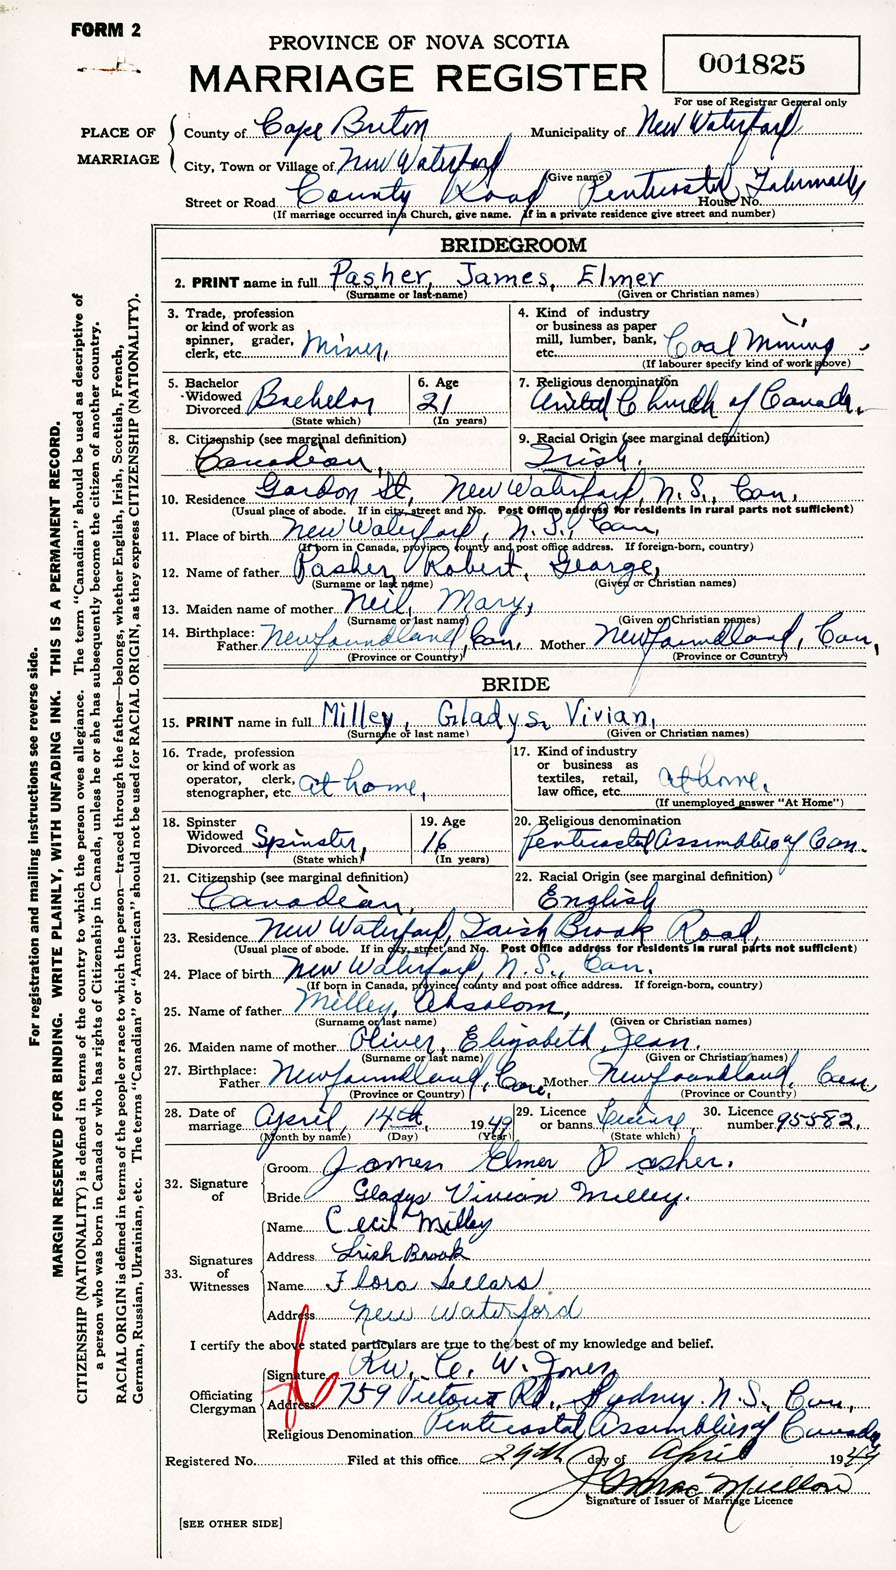 FORM 2
PROVINCE OF NOVA SCOTIA
MARRIAGE REGISTER
001825
For use of Registrar General only
PLACE OF MARRIAGE
County of Cape Breton Municipality of New Waterford
City, Town or Village of New Waterford
(Give name)
Street or Road County Road Pentecostal Tabernacle House No.
(If marriage occurred in a Church, give name. If in a private residence give street and number)
BRIDEGROOM
2. PRINT name in full Pasher, James, Elmer
(Surname or last name) (Given or Christian names)
3. Trade, profession or kind of work as spinner, grader, clerk, etc. Miner,
4. Kind of industry or business as paper mill, lumber, bank, etc. Coal Mining
(If labourer specify kind of work above)
5. Bachelor Widowed Divorced Bachelor
(State which)
6. Age 21
(In years)
7. Religious denomination United Church of Canada.
8. Citizenship (see marginal definition) Canadian,
9. Racial Origin (see marginal definition) Irish.
10. Residence Gordon St, New Waterford, N.S., Can.
(Usual place of abode. If in city, street and No. Post Office address for residents in rural parts not sufficient)
11. Place of birth New Waterford, N.S., Can,
(If born in Canada, province, county and post office address. If foreign-born, country)
12. Name of father Pasher, Robert, George,
(Surname or last name) (Given or Christian names)
13. Maiden name of mother Neil, Mary,
(Surname or last name) (Given or Christian names)
14. Birthplace: Father Newfoundland, Can. Mother Newfoundland, Can,
(Province or Country) (Province or Country)
BRIDE
15. PRINT name in full Milley, Gladys, Vivian,
(Surname or last name) (Given or Christian names)
16. Trade, profession or kind of work as operator, clerk, stenographer, etc. at home,
17. Kind of industry or business as textiles, retail, law office, etc. at home.
(If unemployed answer "At Home")
18. Spinster Widowed Divorced Spinster,
(State which)
19. Age 16
(In years)
20. Religious denomination Pentecostal Assemblies of Can.
21. Citizenship (see marginal definition) Canadian,
22. Racial Origin (see marginal definition) English
23. Residence New Waterford, Irish Brook Road,
(Usual place of abode. If in city, street and No. Post Office address for residents in rural parts not sufficient)
24. Place of birth New Waterford, N.S., Can.
(If born in Canada, province county and post office address. If foreign-born, country)
25. Name of father Milley, Absalom,
(Surname or last name) (Given or Christian names)
26. Maiden name of mother Oliver, Elizabeth Jean.
(Surname or last name) (Given or Christian names)
27. Birthplace: Father Newfoundland, Can, Mother Newfoundland, Can
(Province or Country) (Province or Country)
28. Date of marriage April, 14th, 1949
(Month by name) (Day) (Year)
29. Licence or banns License,
(State which)
30. Licence number 95582.
32. Signature of
Groom James Elmer Pasher.
Bride Gladys Vivian Milley.
33. Signatures of Witnesses
Name Cecil Milley
Address Irish Brook
Name Flora Sellars
Address New Waterford
I certify the above stated particulars are true to the best of my knowledge and belief.
Officiating Clergyman
Signature Rev. C. W. Jones
Address 759 Victoria Rd., Sydney. N.S., Can,
Religious Denomination Pentecostal Assemblies of Canada
Registered No. Filed at this office 29th day of April 1949
Signature of Issuer of Marriage Licence
[SEE OTHER SIDE]
For registration and mailing instructions see reverse side.
MARGIN RESERVED FOR BINDING. WRITE PLAINLY, WITH UNFADING INK. THIS IS A PERMANENT RECORD.
CITIZENSHIP (NATIONALITY) is defined in terms of the country to which the person owes allegiance. The term "Canadian" should be used as descriptive of
a person who was born in Canada or who has rights of Citizenship in Canada, unless he or she has subsequently become the citizen of another country.
RACIAL ORIGIN is defined in terms of the people or race to which the person—traced through the father—belongs, whether English, Irish, Scottish, French,
German, Russian, Ukrainian, etc. The terms "Canadian" or "American" should not be used for RACIAL ORIGIN, as they express CITIZENSHIP (NATIONALITY).